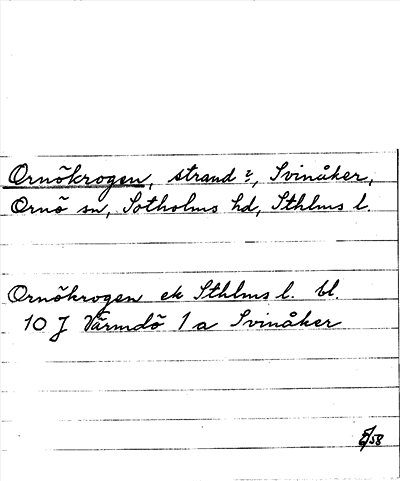 Ornökrogen, strand ?, Svinåker,
Ornö sn, Sotholms hd, Sthlms l.
Ornökrogen ek Sthlms l. bl.
10 J Värmdö 1 a Svinåker